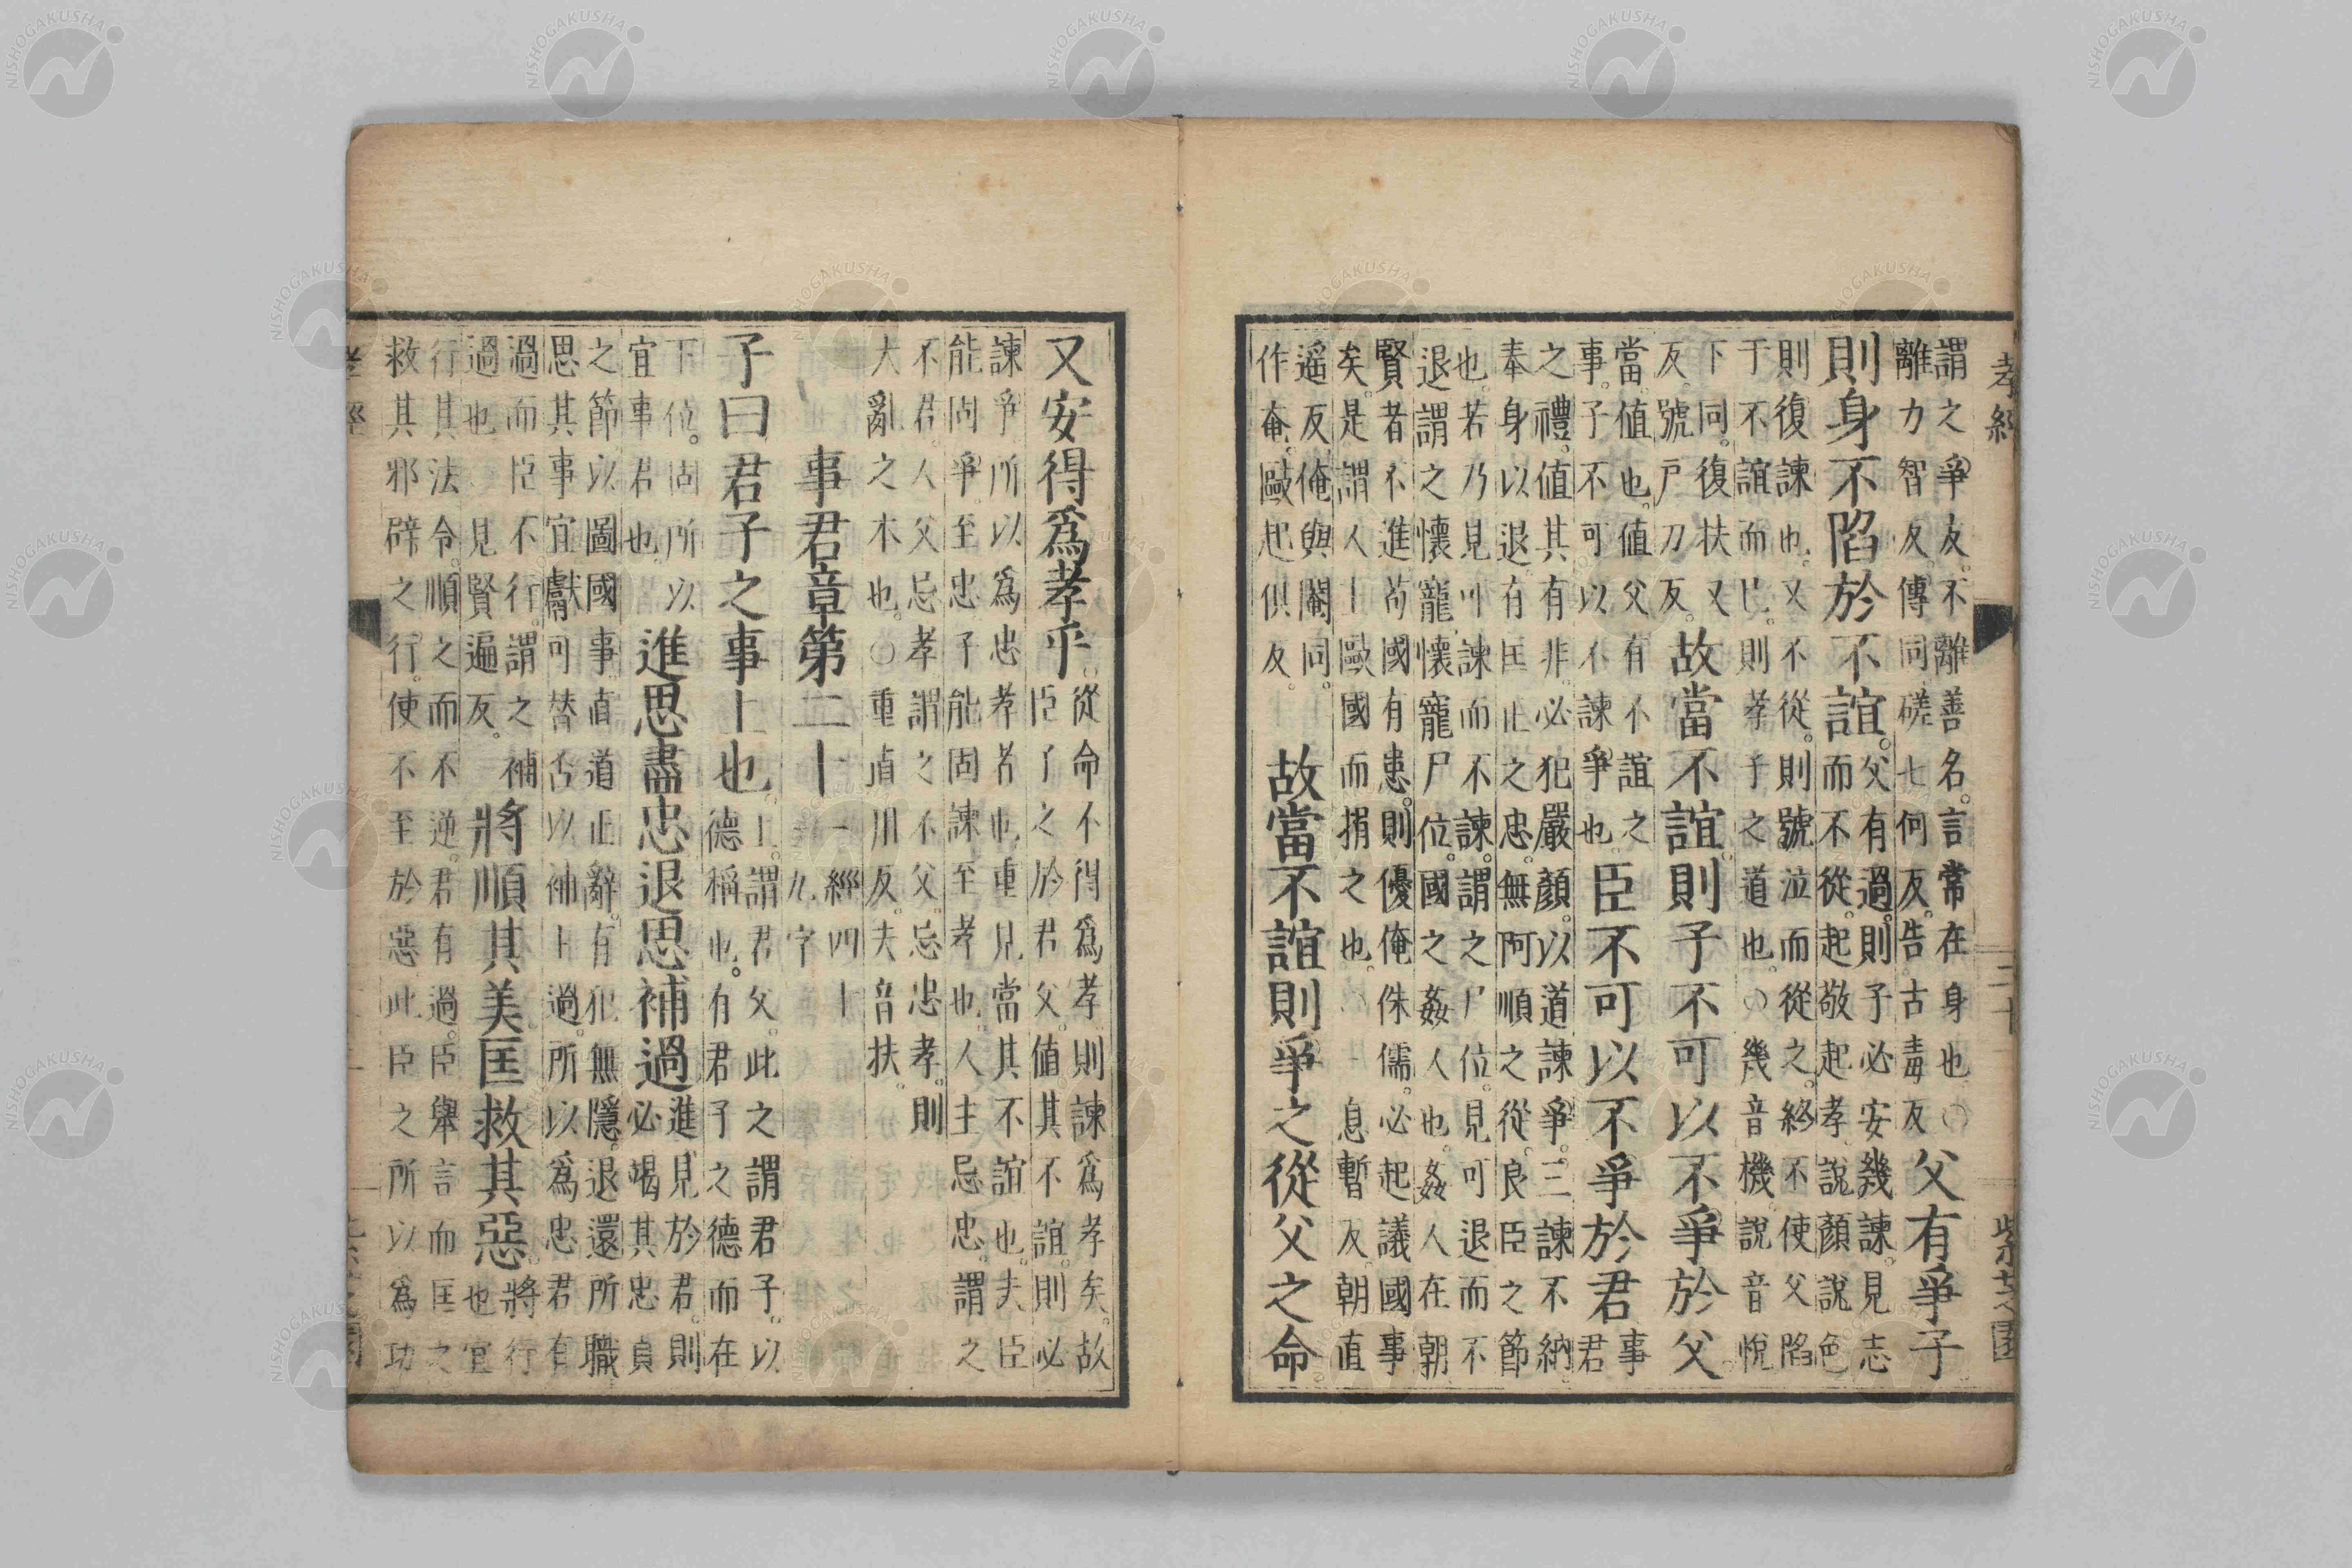 孝經 二十 紫芝園
謂之爭友。不離善名。言常在身也○
離力智反。傳同。磋七何反。告古毒反
父有爭子
則身不陷於不誼。
父有過。則子必安幾諫。見志
而不從。起敬起孝。說顏說色
則復諫也。又不從。則號泣而從之。終不使父陷
于不誼而已。則孝子之道也。○幾音機。說音悅
下同。復扶又
反。號戶刀反。
故當不誼。則子不可以不爭於父。
當。値也。値父有不誼之
事。子不可以不諫爭也。
臣不可以不爭於君
事
君
之禮。値其有非。必犯嚴顏。以道諫爭。三諫不納。
奉身以退。有匡正之忠。無阿順之從。良臣之節
也。若乃見可諫而不諫。謂之尸位。見可退而不
退。謂之懷寵。懷寵尸位。國之姦人也。姦人在朝
賢者不進。苟國有患。則優俺侏儒。必起議國事
矣。是謂人主歐國而捐之也。○三息暫反。朝直
遥反。俺與閹同。
作奄。歐起俱反。
故當不誼則爭之從父之命。
又安得爲孝乎。
從命不得爲孝。則諫爲孝矣。故
臣子之於君父。値其不誼。則必
諫爭。所以爲忠孝者也。重見當其不誼也。夫臣
能固爭。至忠。子能固諫。至孝也。人主忌忠。謂之
不君。人父忌孝。謂之不父。忘忠孝。則
大亂之本也。○重直用反。夫音扶。
事君章第二十一
經四十
九字
子曰君子之事上也。
上。謂君父。此之謂君子。以
德稱也。有君子之德而在
下位。固所以
宜事君也。
進思盡忠退思補過
進見於君。則
必竭其忠貞
之節。以圖國事。直道正辭。有犯無隱。退還所職
思其事宜。獻可替否。以補上過。所以爲忠。君有
過而臣不行。謂之補
過也。見賢遍反。
將順其美匡救其惡。
將行
也。官
行其法令。順之而不逆。君有過。臣舉言而匡之
救其邪辟之行。使不至於惡。此臣之所以爲功